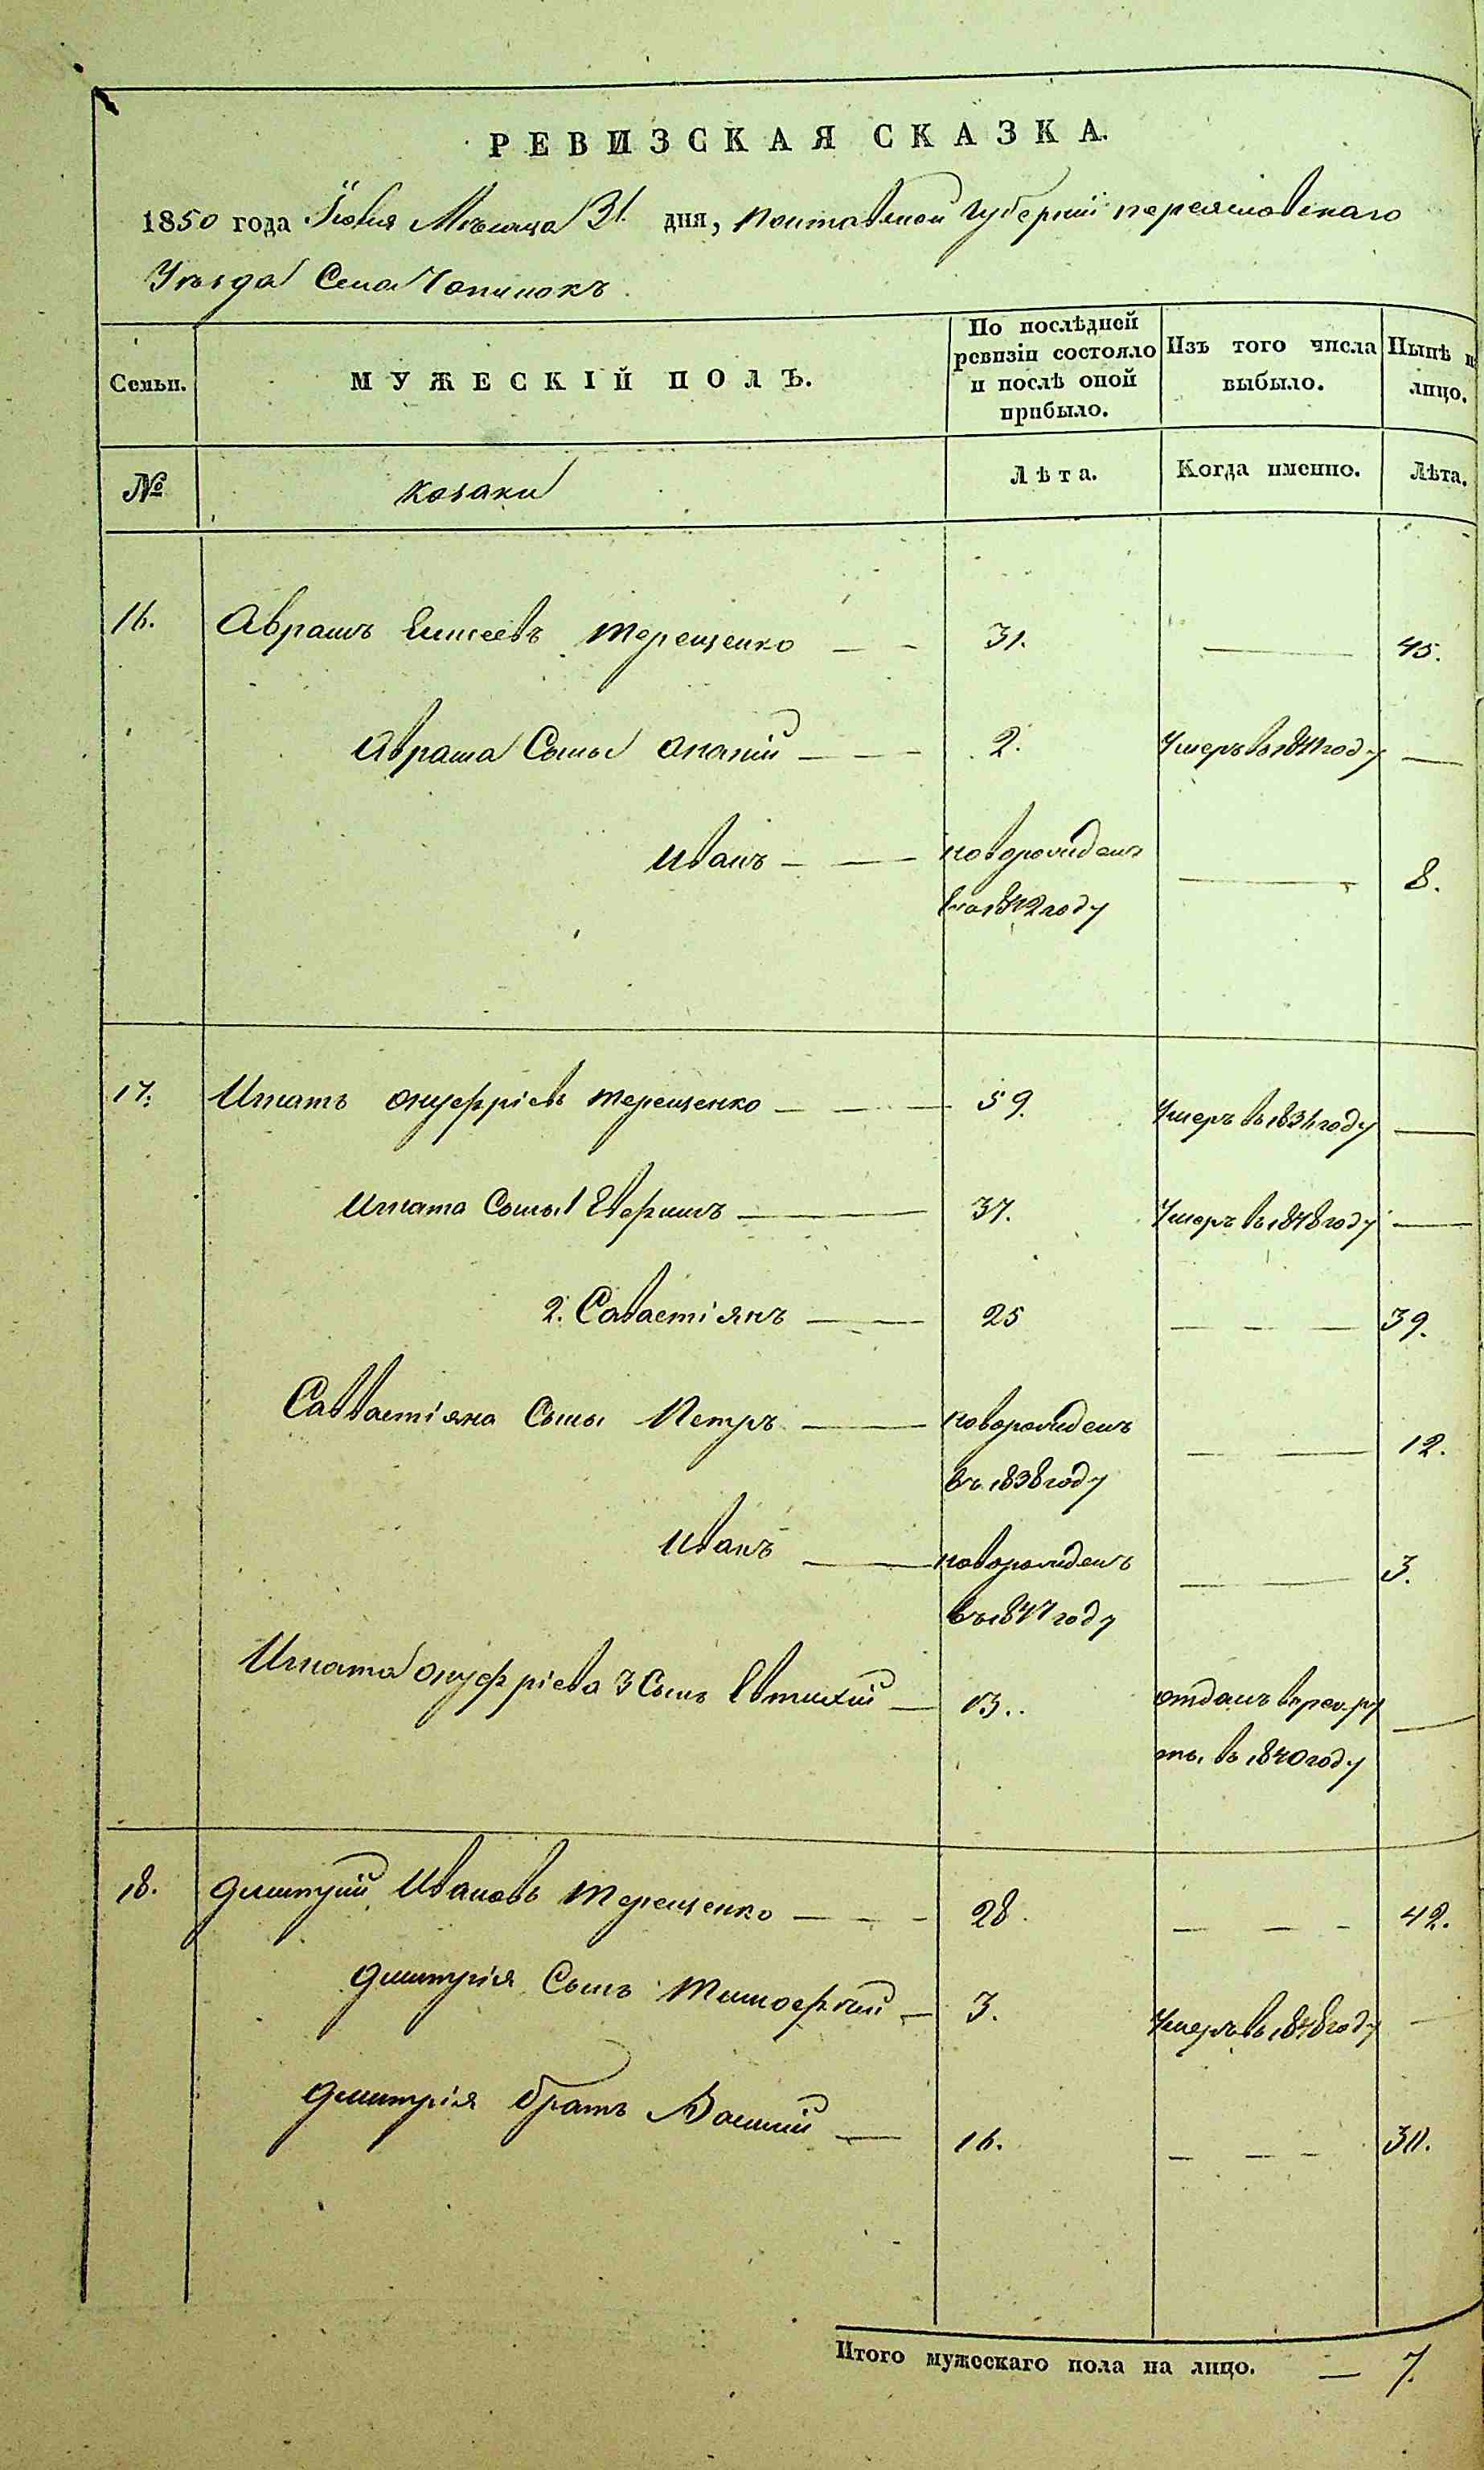 РЕВИЗСКАЯ СКАЗКА.
1850 года Іюля Мѣсяца 31 дня, Полтавской Губерніи переясловскаго
Уѣзда Села Чопилокъ
Семьи. МУЖЕСКІЙ ПОЛЪ. По послѣдней ревизіи состояло и послѣ оной прибыло. Изъ того числа выбыло. Нынѣ на лицо.
№ козаки Лѣта. Когда именно. Лѣта.
16. Аврамъ Елисеевъ Терещенко 31. 45.
Аврама Сыны Ананій 2. Умеръ в 1841 году
Иванъ новорожденъ 8.
в 1842 году
17. Игнатъ Онуфріевъ терещенко 59. Умеръ в 183 году
Игната Сыны 1 Ефимъ 37. Умеръ в 1848 году
2. Савастіянъ 25 39.
Савастіяна Сыны Петръ новорожденъ 12.
въ 1838 году
Иванъ новорожденъ 3.
въ 1847 году
Игната Онуфріева 3 Сынъ Евтихій 13. отданъ в рекру
ты, в 1840 году
18. Дмитрій Ивановъ Терещенко 28. 42.
Дмитрія Сынъ Тимофей 3. Умеръ в 1848 году
Дмитрія братъ Василій 16. 30.
Итого мужескаго пола на лицо. 7.